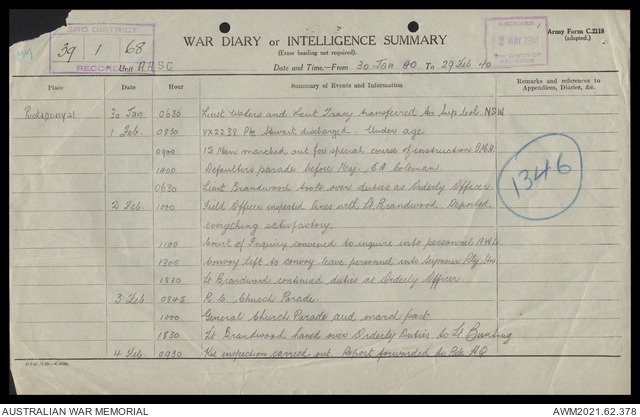 3RD DISTRICT
39 / 1 / 68
RECORDS
RECEIVED
MAY 1940
WAR DIARY or INTELLIGENCE SUMMARY
(Erase heading not required).
Army Form C.2118
(adapted.)
Unit A.A.S.C.
Date and Time.—From 30 Jan 40 To 29 Feb. 40
Place Date Hour Summary of Events and Information Remarks and references to Appendices, Diaries, &c.
Puckapunyal 30 Jan 0630 Lieut Waters and Lieut Tracy transferred to Sup Col. NSW
1 Feb. 0830 VX2239 Pte Stewart discharged. Under age
0900 12 Men marched out for special course of instruction
1400 Defaulters parade before Maj. Coleman
0630 Lieut Brandwood took over duties as Orderly Officer
2 Feb. 1000 Field Officer inspected lines with Lt Brandwood Reported
everything satisfactory.
1100 Court of Inquiry convened to inquire into personnel A.W.L.
1300 Convoy left to convoy leave personnel into Seymour Rly Stn
1830 Lt Brandwood continued duties as Orderly Officer
3 Feb. 0845 R.C. Church Parade
1000 General Church Parade and march past
1830 Lt Brandwood haned over Orderly Duties to Lt Bunting
4 Feb. 0930 Kit inspection carried out. Report forwarded to Bde H.Q
1346
AUSTRALIAN WAR MEMORIAL
AWM2021.62.378